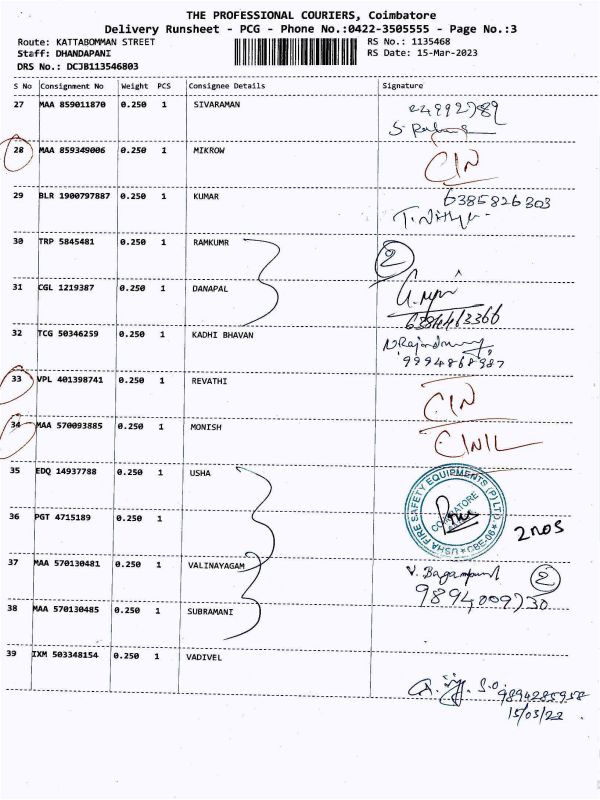 THE PROFESSIONAL COURIERS, Coimbatore
Delivery Runsheet - PCG - Phone No.:0422-3505555 - Page No.:3
Route: KATTABOMMAN STREET
RS No.: 1135468
Staff: DHANDAPANI
RS Date: 15-Mar-2023
DRS No.: DCJB113546803
S No Consignment No Weight PCS Consignee Details Signature
27 MAA 859011870 0.250 1 SIVARAMAN
28 MAA 859349006 0.250 1 MIKROW CIN
29 BLR 1900797887 0.250 1 KUMAR 6385826303
30 TRP 5845481 0.250 1 RAMKUMR 2
31 CGL 1219387 0.250 1 DANAPAL
32 TCG 50346259 0.250 1 KADHI BHAVAN
33 VPL 401398741 0.250 1 REVATHI CIN
34 MAA 570093885 0.250 1 MONISH
35 EDQ 14937788 0.250 1 USHA
USHA FIRE SAFETY EQUIPMENTS (P) LTD. CBE-06
COIMBATORE
36 PGT 4715189 0.250 1 2 nos
37 MAA 570130481 0.250 1 VALINAYAGAM 2
38 MAA 570130485 0.250 1 SUBRAMANI
39 IXM 503348154 0.250 1 VADIVEL
9894285958